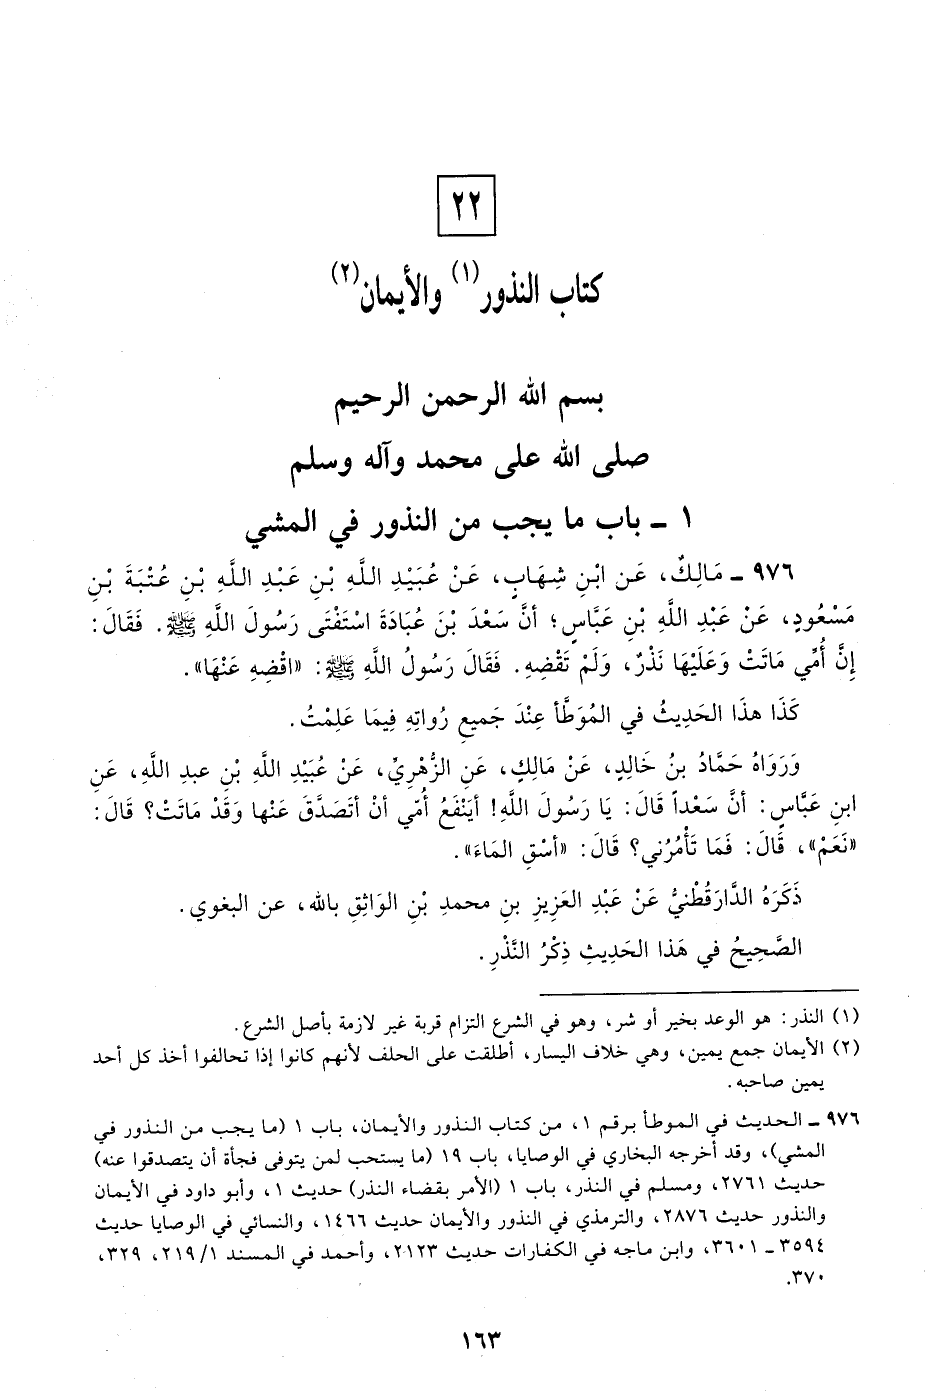 ٢٢
كتاب النذور(١) والأيمان(٢)
بسم الله الرحمن الرحيم
صلى الله على محمد وآله وسلم
١ ـ باب ما يجب من النذور في المشي
٩٧٦ ـ مَالِكٌ، عَن ابْنِ شِهَابٍ، عَنْ عُبَيْدِ اللَّهِ بْنِ عَبْدِ اللَّهِ بْنِ عُتْبَةَ بْنِ
مَسْعُودٍ، عَنْ عَبْدِ اللَّهِ بْنِ عَبَّاسٍ؛ أنَّ سَعْدَ بْنَ عُبَادَةَ اسْتَفْتَى رَسُولَ اللَّهِ ﷺ. فَقَالَ:
إِنَّ أُمِّي مَاتَتْ وَعَلَيْهَا نَذْرٌ، وَلَمْ تَقْضِهِ. فَقَالَ رَسُولُ اللَّهِ ﷺ: «اقْضِهِ عَنْهَا».
كَذَا هذَا الحَدِيثُ في المُوَطَّأ عِنْدَ جَمِيعِ رُواتِهِ فِيمَا عَلِمْتُ.
وَرَوَاهُ حَمَّادُ بنُ خَالِدٍ، عَنْ مَالِكٍ، عَنِ الزُّهْرِيِّ، عَنْ عُبَيْدِ اللَّهِ بْنِ عبدِ اللَّهِ، عَنِ
ابنِ عَبَّاسٍ: أنَّ سَعْداً قَالَ: يَا رَسُولَ اللَّهِ! أيَنْفَعُ أُمِّي أنْ أتَصَدَّقَ عَنْها وَقَدْ مَاتَتْ؟ قَالَ:
«نَعَمْ»، قَالَ: فَمَا تَأْمُرُني؟ قَالَ: «أسْقِ المَاءَ».
ذَكَرَهُ الدَّارَقُطْنيُّ عَنْ عَبْدِ العَزِيزِ بنِ محمدِ بْنِ الوَاثِقِ بالله، عن البغوي.
الصَّحِيحُ في هَذا الحَدِيثِ ذِكْرُ النَّذْرِ.
(١) النذر: هو الوعد بخير أو شر، وهو في الشرع التزام قربة غير لازمة بأصل الشرع.
(٢) الأيمان جمع يمين، وهي خلاف اليسار، أطلقت على الحلف لأنهم كانوا إذا تحالفوا أخذ كل أحد
يمين صاحبه.
٩٧٦ ـ الحديث في الموطأ برقم ١، من كتاب النذور والأيمان، باب ١ (ما يجب من النذور في
المشي)، وقد أخرجه البخاري في الوصايا، باب ١٩ (ما يستحب لمن يتوفى فجأة أن يتصدقوا عنه)
حديث ٢٧٦١، ومسلم في النذر، باب ١ (الأمر بقضاء النذر) حديث ١، وأبو داود في الأيمان
والنذور حديث ٢٨٧٦، والترمذي في النذور والأيمان حديث ١٤٦٦، والنسائي في الوصايا حديث
٣٥٩٤ ـ ٣٦٠١، وابن ماجه في الكفارات حديث ٢١٢٣، وأحمد في المسند ١/ ٢١٩، ٣٢٩،
٣٧٠.
١٦٣